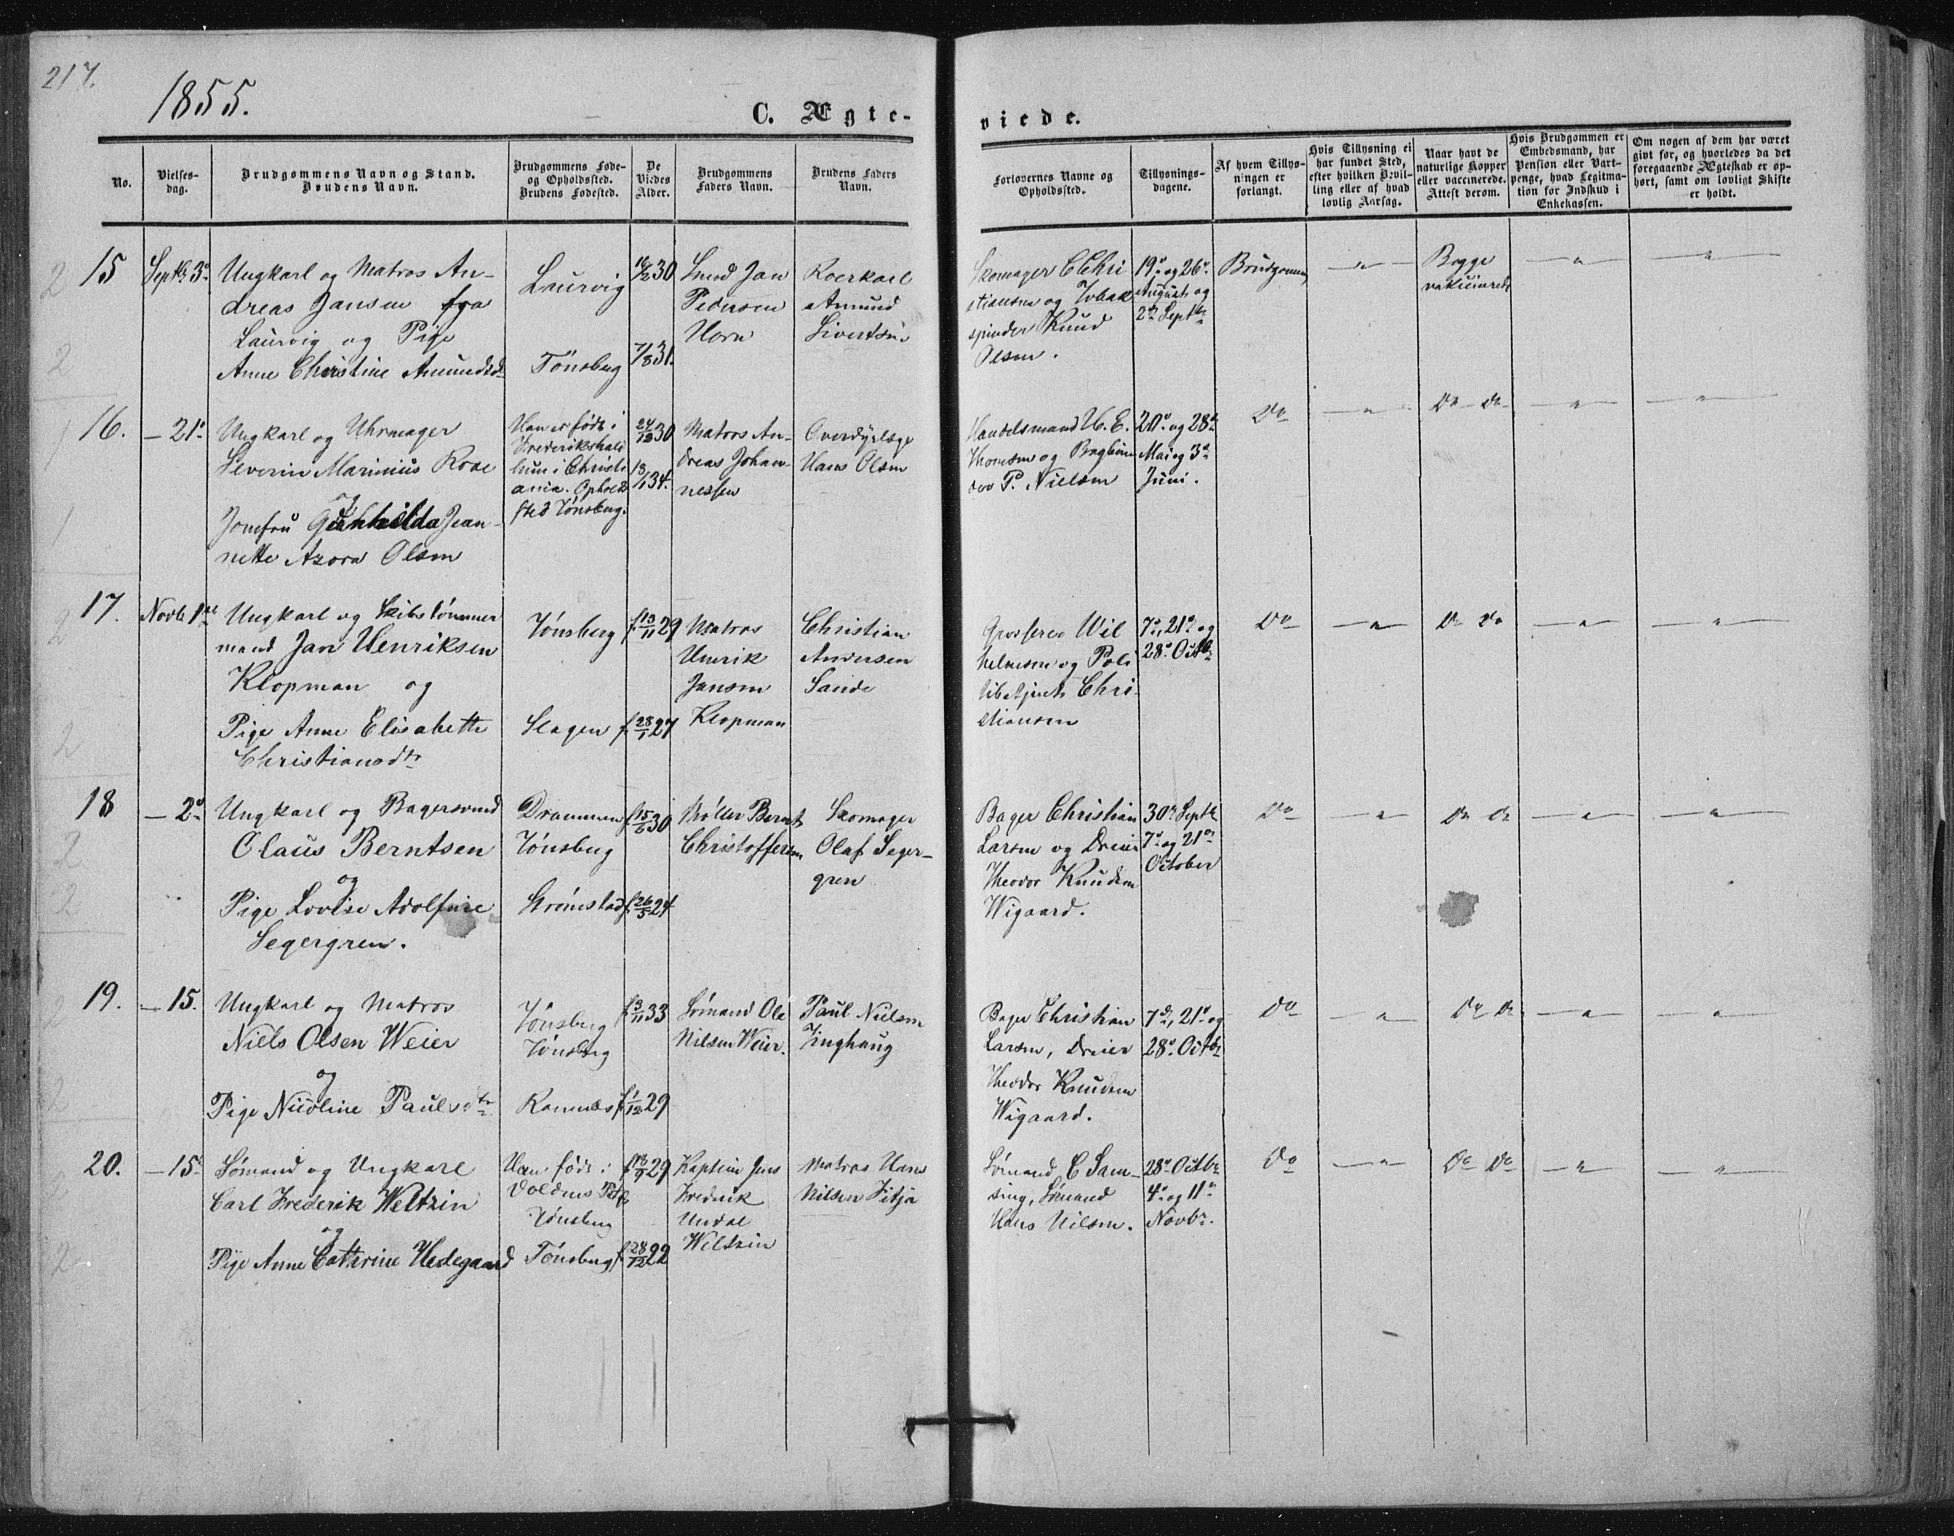 217.
1855.
C. Ægte-
viede.
No.
Vielses-
dag.
Brudgommens Navn og Stand.
Brudens Navn.
Brudgommens Føde-
og Opholdssted.
Brudens Fødested.
De
Viedes
Alder.
Brudgommens
Faders Navn.
Brudens Faders
Navn.
Forlovernes Navne og
Opholdssted.
Tillysnings-
dagene.
Af hvem Tillys-
ningen er
forlangt.
Hvis Tillysning ei
har fundet Sted,
efter hvilken Bevil-
ling eller af hvad
lovlig Aarsag.
Naar havt de
naturlige Kopper
eller vaccinerede.
Attest derom.
Hvis Brudgommen er
Embedsmand, har
Pension eller Vart-
penge, hvad Legitima-
tion for Indskud i
Enkekassen.
Om nogen af dem har været
givt før, og hvorledes da det
foregaaende Ægteskab er op-
hørt, samt om lovligt Skifte
er holdt.
15
Septbr 3die
Ungkarl og Matros An-
dreas Jansen fra
Laurvig og Pige
Anne Christine Amundsd.
Laurvig
Tönsberg
16/2 30
7/8 31.
Jan
Pedersen
Horn
Roerkarl
Amund
Sivertsen
Skomager C Chri
stiansen og Tobak
spinder Knud
Olsen.
19de og 26de
August og
2den Septbr
Brudgommen
Begge
vakcinerede
16.
— 21de
Ungkarl og Uhrmager
Severin Marinius Rose
og
Jomfru Gunhilda Jean-
nette Azora Olsen
Han er född i
Frederikshald
hun i Christi
ania. Opholds
sted Tönsberg.
24/12 30
13/1 34.
Matros An-
dreas Johan-
nessen
Overdyrlæge
Hans Olsen
Handelsmand H. E.
Thomsen og Bogbin
der P. Nielsen
20de og 28de
Mai og 3die
Juni.
Do
Do Do
17.
Novbr 1ste
Ungkarl og Skibstömmer
mand Jan Henriksen
Klopman og
Pige Anne Elisabeth
Christiansdtr
Tönsberg
Slagen
f. 13/11 29
f. 28/1 27
Matros
Henrik
Jansen
Klopman
Christian
Andersen
Sande
Grosserer Wil
helmsen og Poli
tibetjent Chri-
stiansen
7de, 21de og
28de Octbr
Do
Do Do
18
— 2den
Ungkarl og Bagersvend
Olaus Berntsen
og
Pige Lovise Adolfine
Segergren.
Drammen
Tönsberg
Strömstad
f. 15/6 30
f. 26/5 24
Möller Bernt
Christoffersen
Skomager
Olaf Seger-
gren
Bager Christian
Larsen og Dreier
Theodor Knudsen
Wigaard.
30te Septbr
7de og 21de
October
Do
Do Do
19.
— 15.
Ungkarl og Matros
Niels Olsen Weier
og
Pige Nicoline Paulsdtr
Tönsberg
Tönsberg
Ramnes
f. 3/11 33
f. 1/12 29
Sömand Ole
Nilsen Weier.
Paul Nielsen
Linghaug
Bager Christian
Larsen, Dreier
Theodor Knudsen
Wigaard.
7de, 21de og
28de Octbr
Do
Do Do
20.
— 15de
Sömand og Ungkarl
Carl Frederik Weltzin
og
Pige Anne Cathrine Hedegaard
Han född i
Voldens
Tönsberg
Tönsberg
29
f. 28/12 22
Kaptein Jens
Fredrik
Undal
Weltzin
Matros Hans
Nilsen Fitja
Sömand C Sam-
sing, Sömand
Hans Nilsen.
28de Octbr
4de og 11te
Novbr.
Do
Do Do